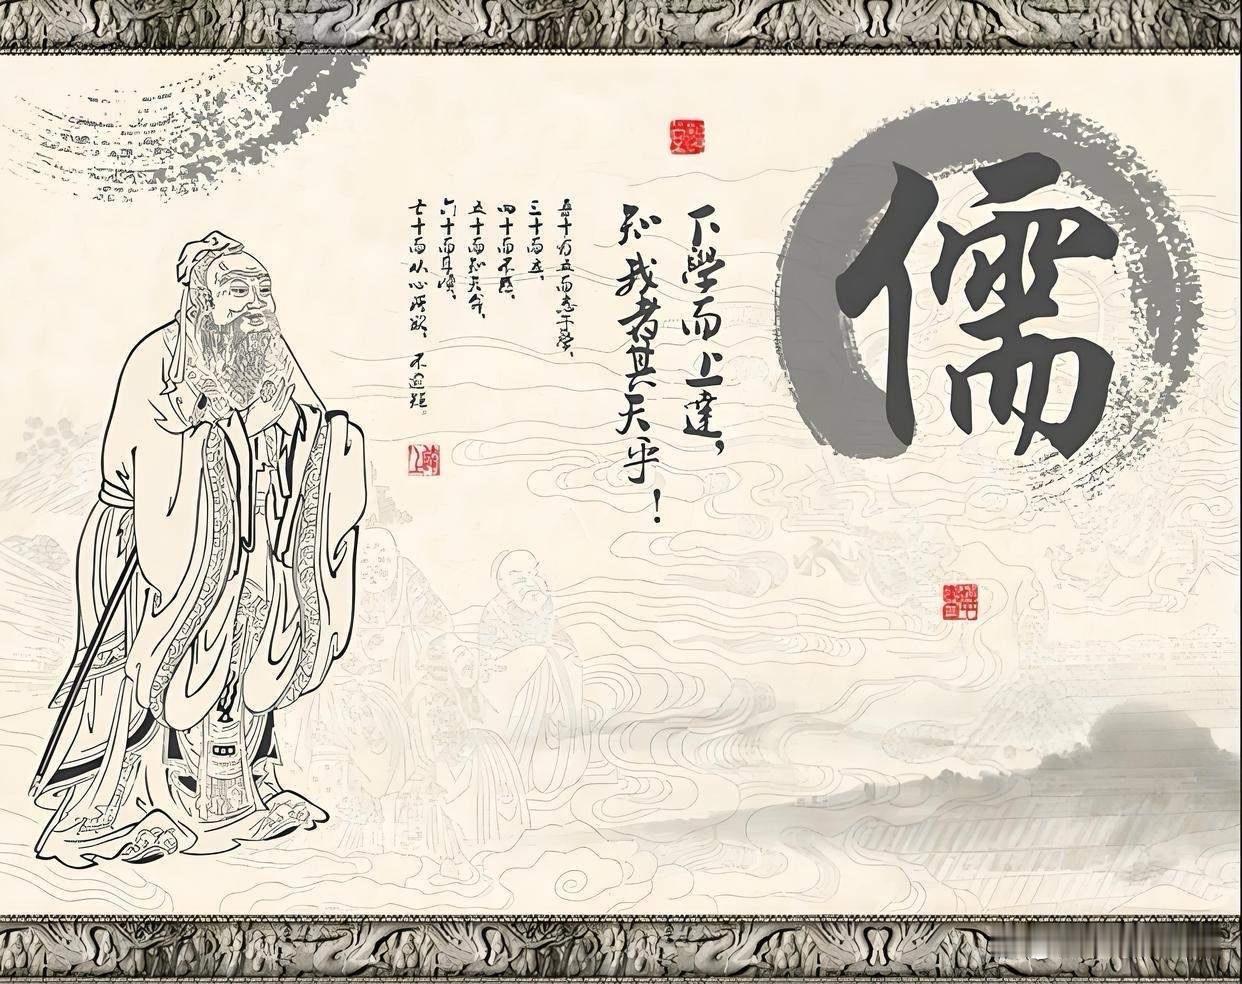 儒
下學而上達，
知我者其天乎！
吾十有五而志于學，
三十而立，
四十而不惑，
五十而知天命，
六十而耳順，
七十而从心所欲，不逾矩。